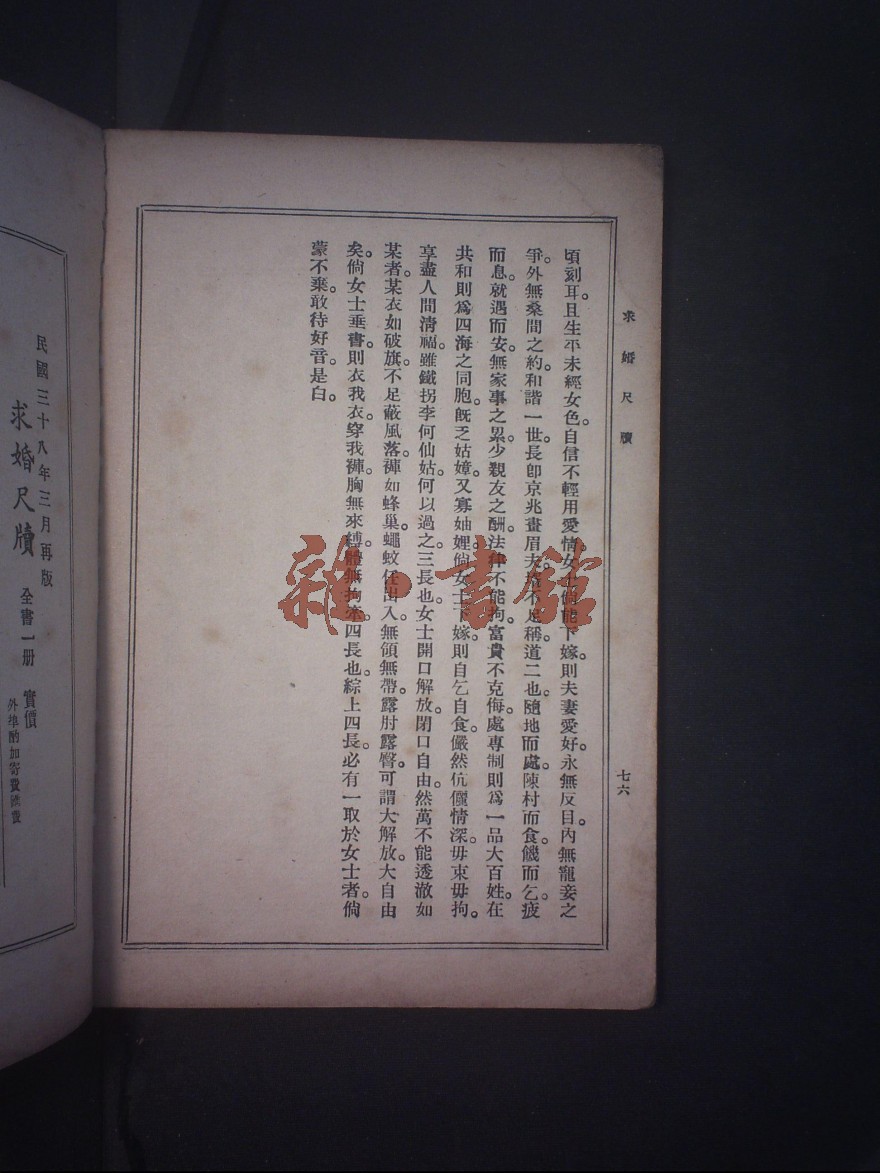 求婚尺牘
七六
頃刻耳。且生平未經女色。自信不輕用愛情。女士倘能下嫁。則夫妻愛好。永無反目。內無寵妾之
爭。外無桑間之約。和諧一世。長卽京兆畫眉。夫壻不足稱道。二也。隨地而處。陳村而食。饑而乞。疲
而息。就遇而安。無家事之累。少親友之酬。法律不能拘。富貴不克侮。處專制則爲一品大百姓。在
共和則爲四海之同胞。旣乏姑嫜。又寡妯娌。倘女士下嫁。則自乞自食。儼然伉儷情深。毋束毋拘。
享盡人間淸福。雖鐵拐李何仙姑。何以過之。三長也。女士開口解放。閉口自由。然萬不能透澈如
某者。某衣如破旗。不足蔽風。落褲如蜂巢。蠅蚊任出入。無領無帶。露肘露臀。可謂大解放。大自由
矣。倘女士垂書。則衣我衣。穿我褲。胸無來縛。體無拘牽。四長也。綜上四長。必有一取於女士者。倘
蒙不棄。敢待好音。是白。
民國三十八年三月再版
求婚尺牘 全書一册 實價
外埠酌加寄費匯費
雜·書館